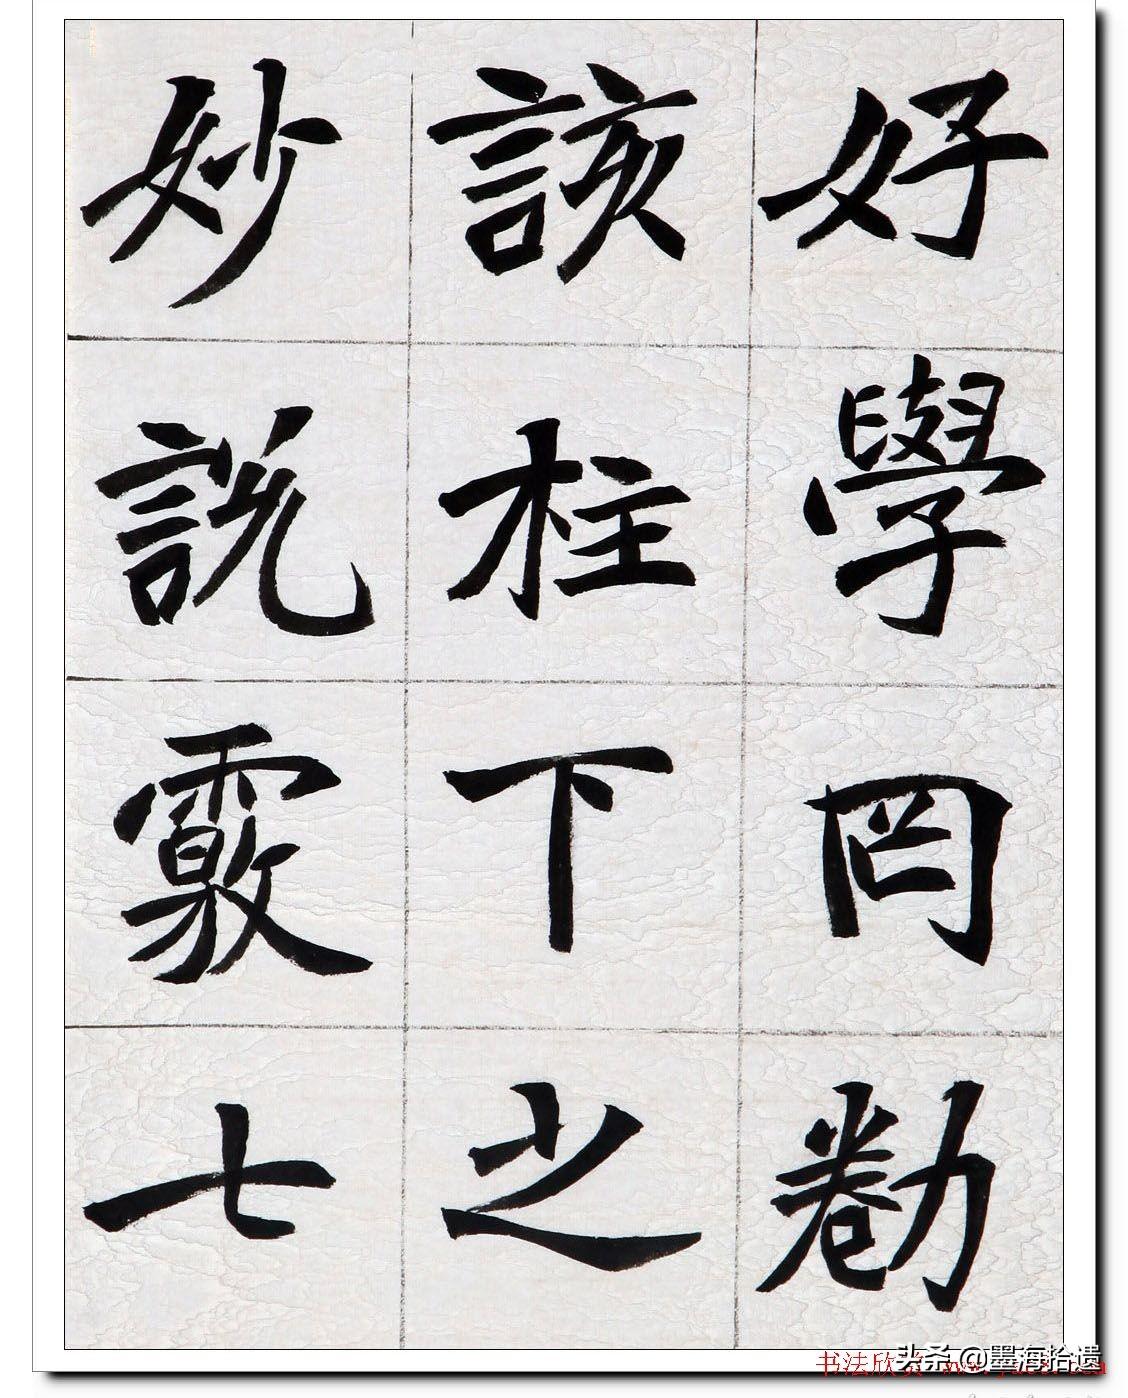 好學罔勌
該柱下之
妙說覈七
书法欣赏
头条 @墨海拾遗